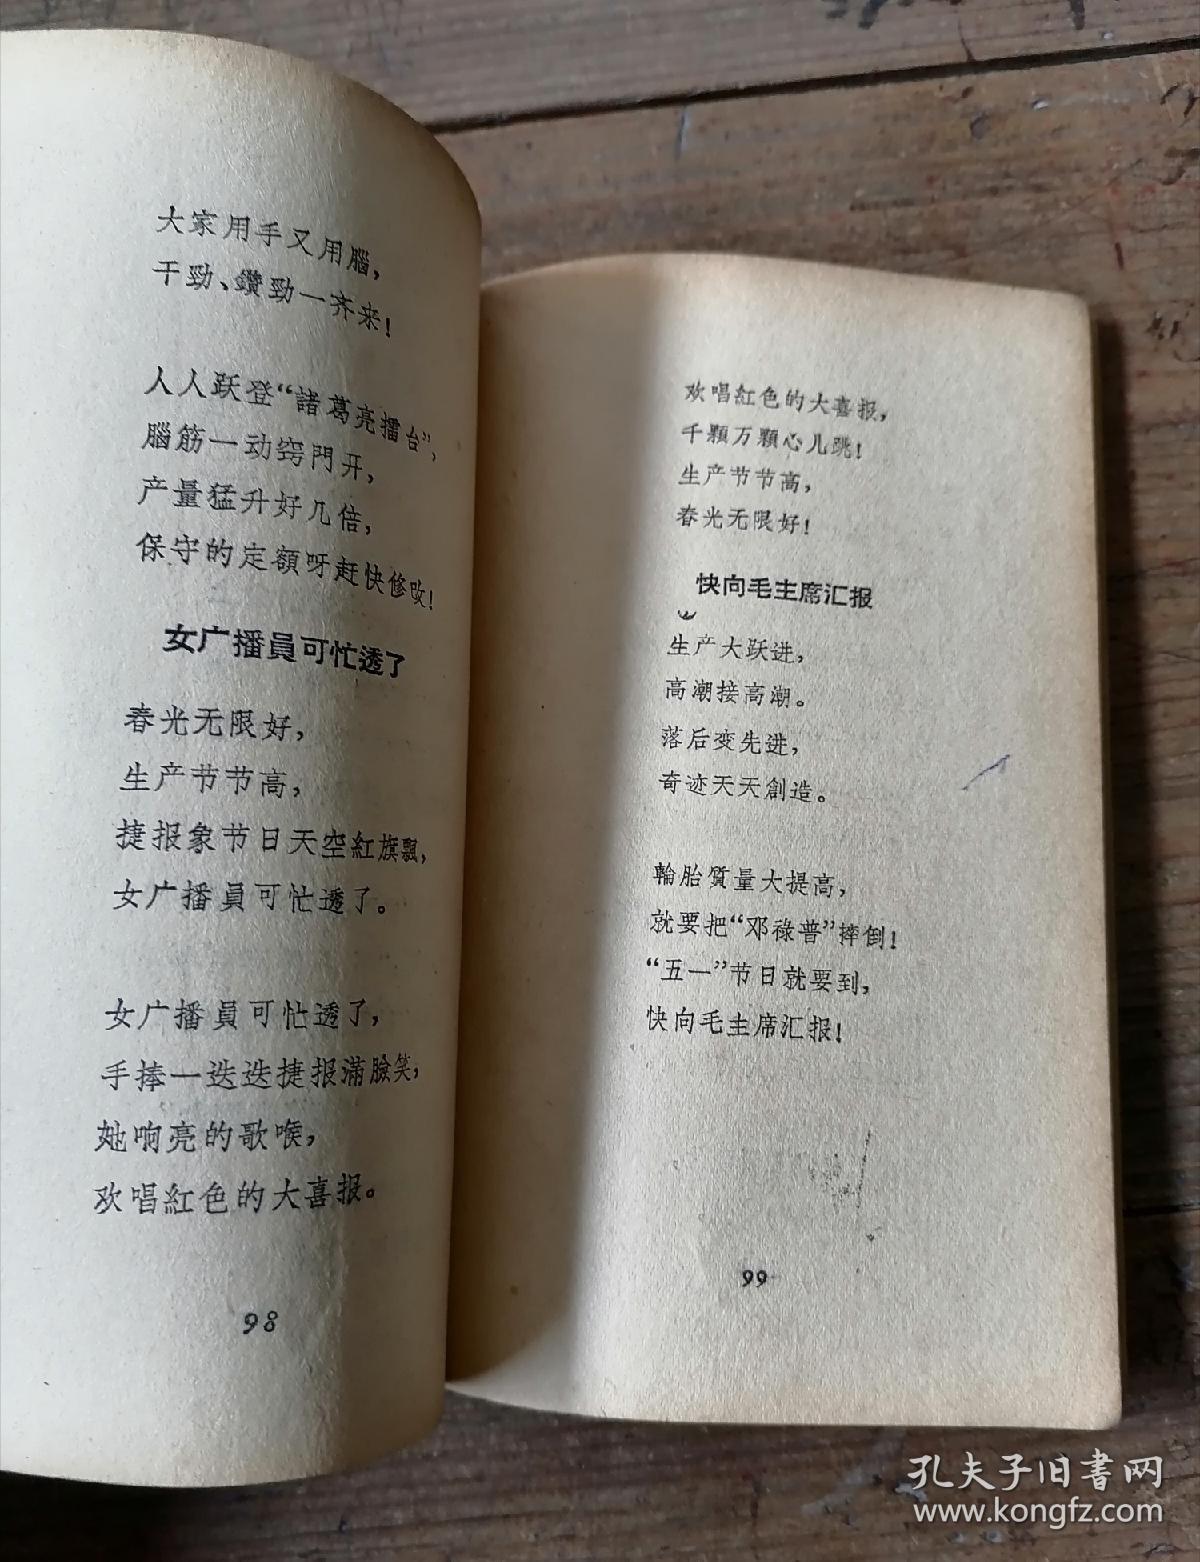 大家用手又用腦，
干勁、鑽勁一齐来！
人人跃登“諸葛亮擂台”，
腦筋一动窍門开，
产量猛升好几倍，
保守的定額呀赶快修改！
女广播員可忙透了
春光无限好，
生产节节高，
捷报象节日天空紅旗飄，
女广播員可忙透了。
女广播員可忙透了，
手捧一迭迭捷报滿臉笑，
她响亮的歌喉，
欢唱紅色的大喜报。
98
欢唱紅色的大喜报，
千顆万顆心儿跳！
生产节节高，
春光无限好！
快向毛主席汇报
生产大跃进，
高潮接高潮。
落后变先进，
奇迹天天創造。
輪胎質量大提高，
就要把“邓祿普”摔倒！
“五一”节日就要到，
快向毛主席汇报！
99
孔夫子旧書网
www.kongfz.com